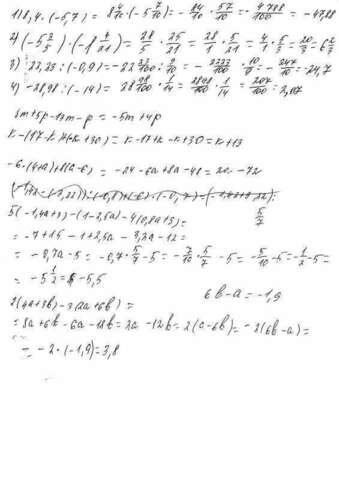 1) 8,4 · (-5,7) = 8 4/10 · (-5 7/10) = - 84/10 · 57/10 = - 4788/100 = -47,88
2) (-5 3/5) : (-1 4/21) = 28/5 : 25/21 = 28/5 · 5/21 = 4/1 · 5/3 = 20/3 = 6 2/3
3) 22,23 : (-0,9) = -22 23/100 : 9/10 = - 2223/100 · 10/9 = - 247/10 = -24,7
4) -28,98 : (-14) = 28 98/100 · 1/14 = 2898/100 · 1/14 = 207/100 = 2,07
= -5m + 4p
= k - 17 + k - k + 30 = k + 13
-6 · (4+a) + 8(a-6) = -24 - 6a + 8a - 48 = 2a - 72
5(-1,4a+3) - (1-2,5a) - 4(0,8a+3) = 5/7
= -7 + 15 - 1 + 2,5a - 3,2a - 12 =
= -0,7a - 5 = -0,7 · 5/7 - 5 = - 7/10 · 5/7 - 5 = - 5/10 - 5 = - 1/2 - 5 =
= -5 1/2 = -5,5
6b - a = -1,9
2(4a+3b) - 3(2a+6b) =
= 8a + 6b - 6a - 18b = 2a - 12b = 2(a - 6b) = -2(6b - a) =
= -2 · (-1,9) = 3,8